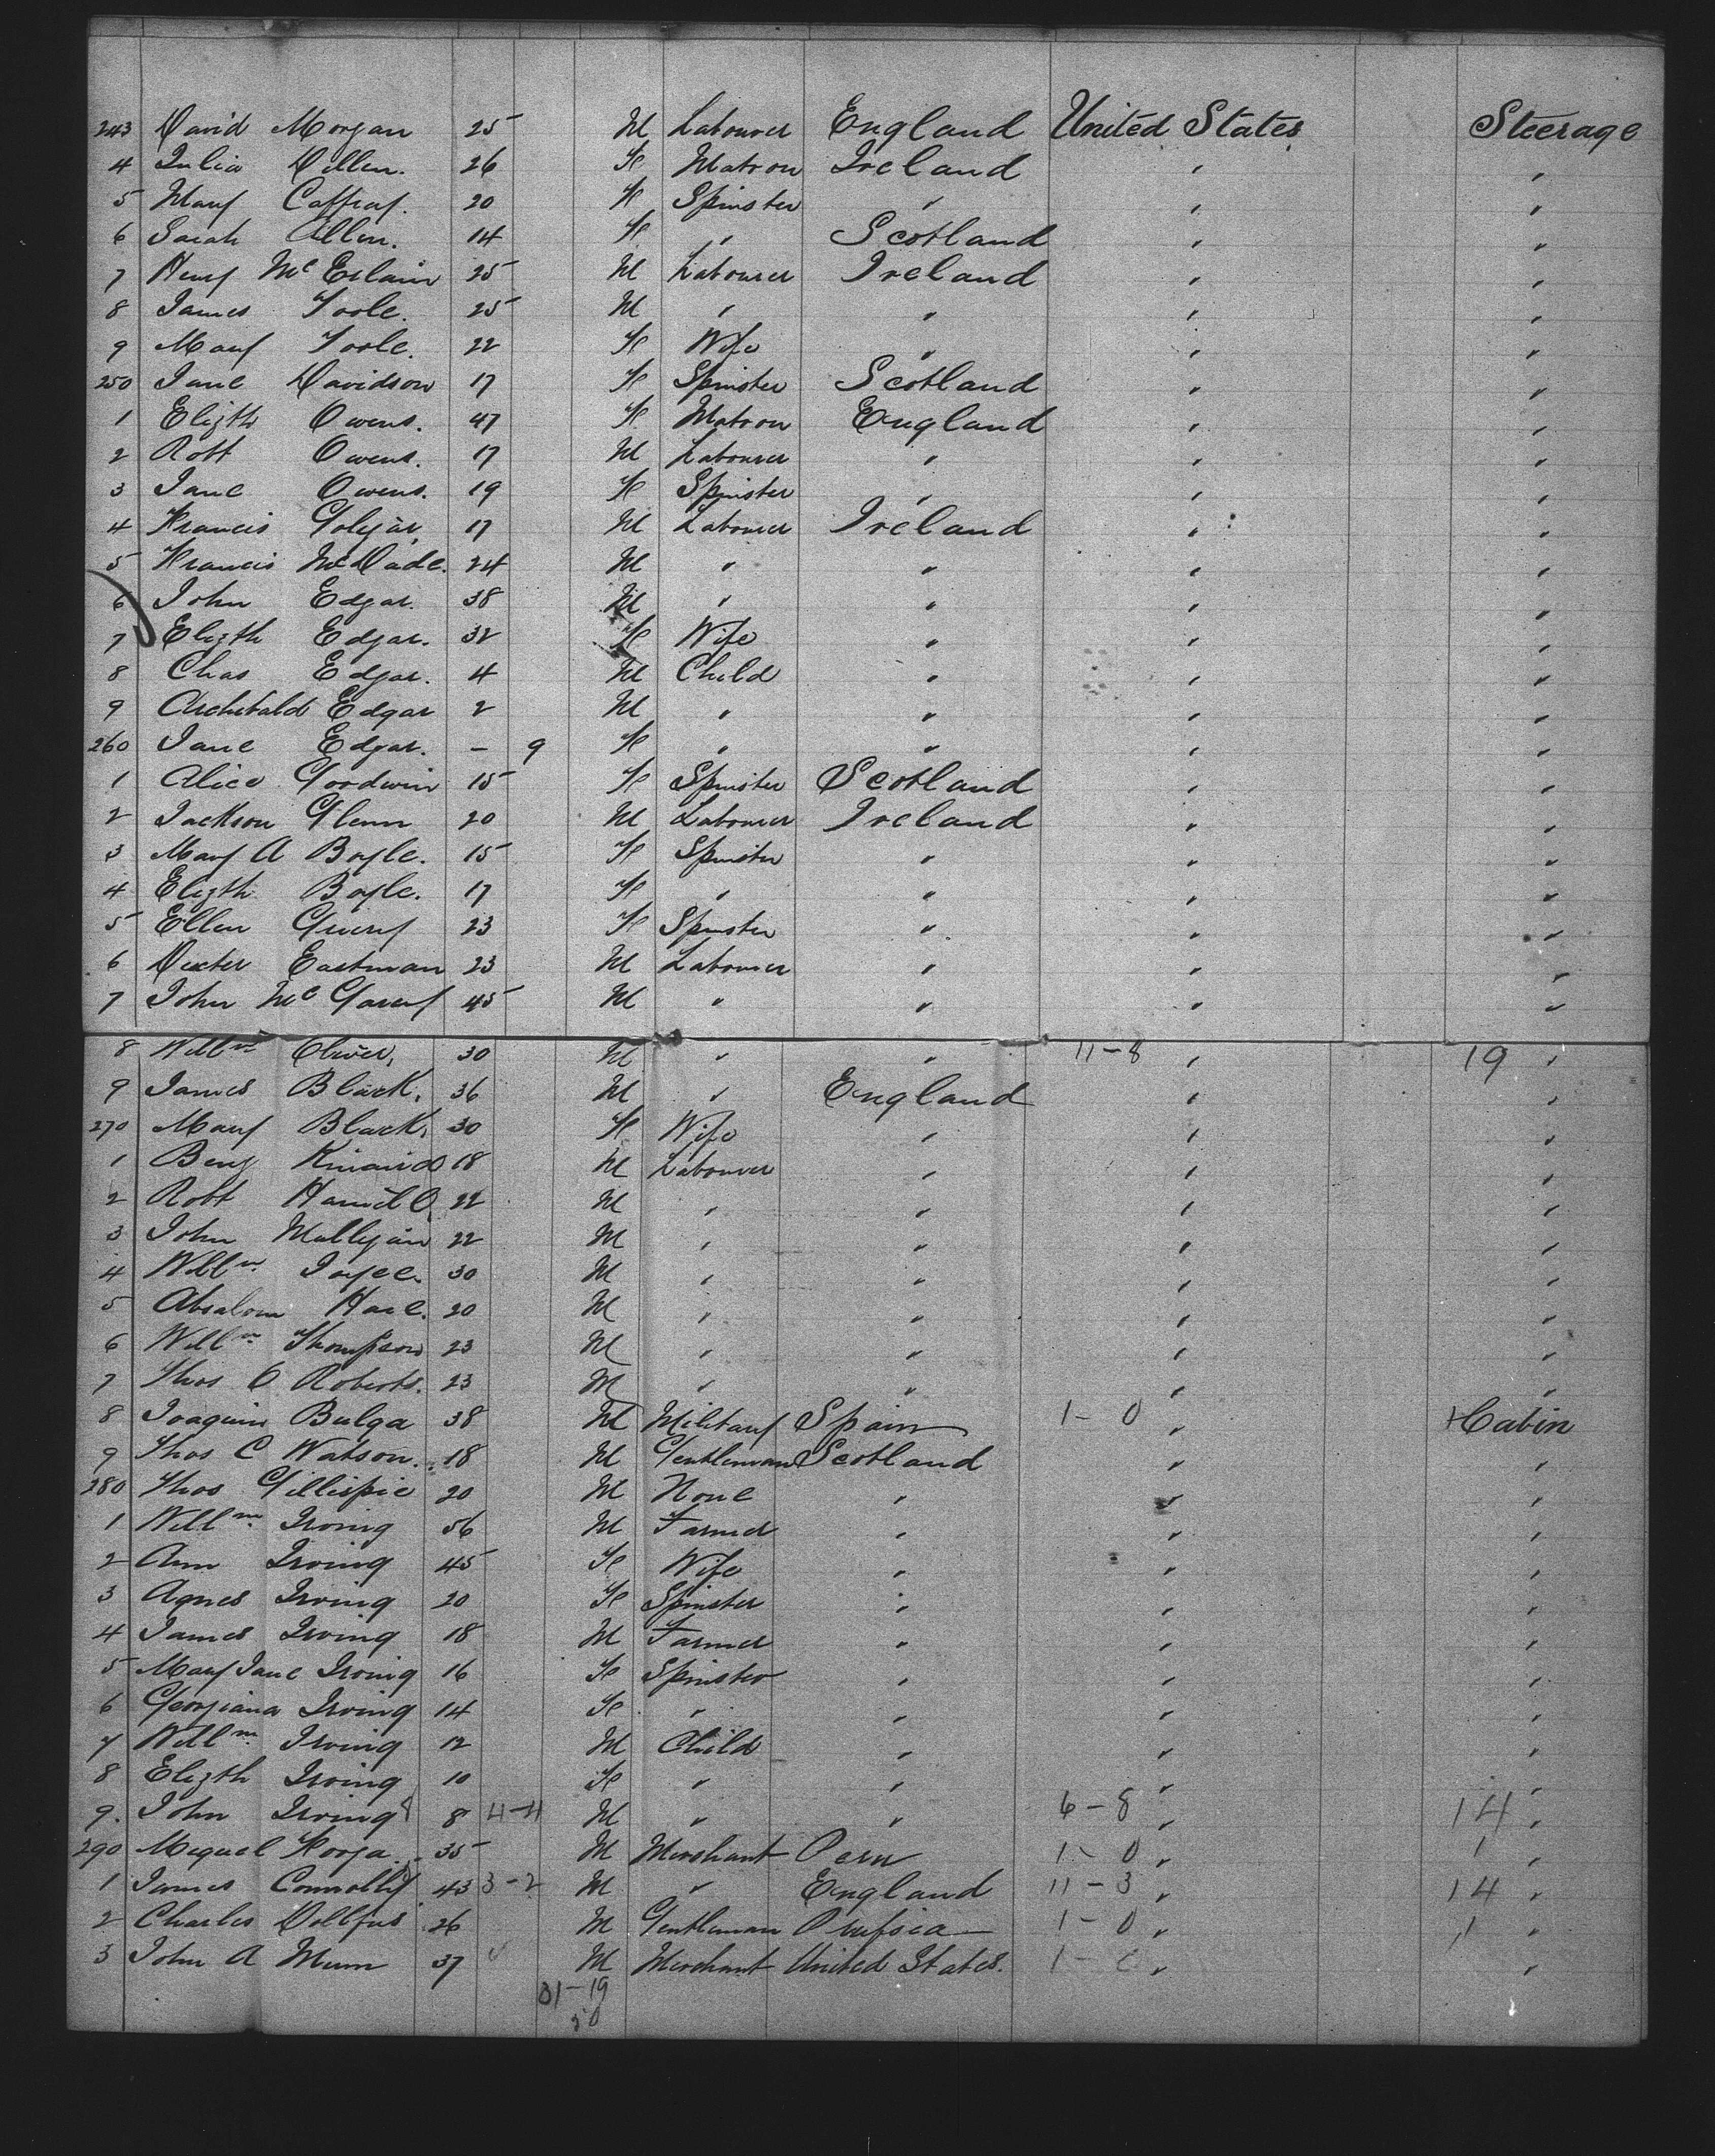 243 David Morgan 25 M Labourer England United States Steerage
4 Julia Dillen. 26 F Matron Ireland " "
5 Mary Caffray. 20 F Spinster " " "
6 Sarah Allen. 14 F " Scotland " "
7 Henry McErlain 25 M Labourer Ireland " "
8 James Toole. 25 M " " " "
9 Mary Toole. 22 F Wife " " "
250 Jane Davidson 17 F Spinster Scotland " "
1 Elizth Owens. 47 F Matron England " "
2 Robt Owens. 17 M Labourer " " "
3 Jane Owens. 19 F Spinster " " "
4 Francis 17 M Labourer Ireland " "
5 Francis McDade. 24 M " " " "
6 John Edgar. 38 M " " " "
7 Elizth Edgar. 32 F Wife " " "
8 Chas Edgar. 4 M Child " " "
9 Archibald Edgar 2 M " " " "
260 Jane Edgar. - 9 F " " " "
1 Alice Goodwin 15 F Spinster Scotland " "
2 Jackson Glenn 20 M Labourer Ireland " "
3 Mary A Boyle. 15 F Spinster " " "
4 Elizth Boyle. 17 F " " " "
5 Ellen 23 F Spinster " " "
6 Dexter Eastman 23 M Labourer " " "
7 John McGarey 45 M " " " "
8 Willm Oliver, 30 M " " 11-8 " 19 "
9 James Black. 36 M " England " "
270 Mary Black, 30 F Wife " " "
1 Benj Kinaird 18 M Labourer " " "
2 Robt 22 M " " " "
3 John Mulligan 22 M " " " "
4 Willm Joyce. 30 M " " " "
5 Absalom Hare. 20 M " " " "
6 Willm Thompson 23 M " " " "
7 Thos O Roberts. 23 M " " " "
8 Joaquin Bulga 38 M Military Spain 1-0 " Cabin
9 Thos C Watson. 18 M Gentleman Scotland " "
280 Thos Gillispie 20 M None " " "
1 Willm Irving 56 M Farmer " " "
2 Ann Irving 45 F Wife " " "
3 Agnes Irving 20 F Spinster " " "
4 James Irving 18 M Farmer " " "
5 Mary Jane Irving 16 F Spinster " " "
6 Georgiana Irving 14 F " " " "
7 Willm Irving 12 M Child " " "
8 Elizth Irving 10 F " " " "
9. John Irving 8 4-4 M " " 6-8 " 14 "
290 Miguel Forga. 35 M Merchant Peru 1-0 " 1 "
1 James Connolly 43 3-2 M " England 11-3 " 14 "
2 Charles Dollfus 26 M Gentleman Prussia 1-0 " 1 "
3 John A Mumm 37 M Merchant United States. 1-0 " "
31-19
50